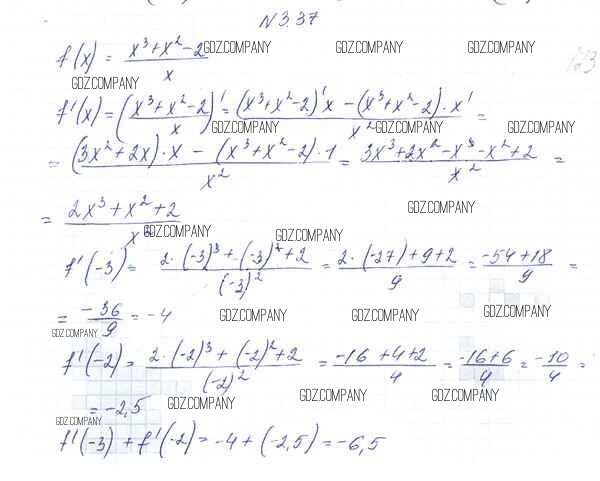 N 3.37
f(x) = (x³+x²-2)/x GDZ.COMPANY GDZ.COMPANY GDZ.COMPANY
GDZ.COMPANY
f'(x) = ((x³+x²-2)/x)' = ((x³+x²-2)'x - (x³+x²-2)·x')/x² =
GDZ.COMPANY GDZ.COMPANY GDZ.COMPANY GDZ.COMPANY
= ((3x²+2x)·x - (x³+x²-2)·1)/x² = (3x³+2x²-x³-x²+2)/x² =
= (2x³+x²+2)/x² GDZ.COMPANY
GDZ.COMPANY GDZ.COMPANY
f'(-3) = (2·(-3)³+(-3)²+2)/(-3)² = (2·(-27)+9+2)/9 = (-54+18)/9 =
= -36/9 = -4 GDZ.COMPANY GDZ.COMPANY GDZ.COMPANY
GDZ.COMPANY
f'(-2) = (2·(-2)³+(-2)²+2)/(-2)² = (-16+4+2)/4 = (-16+6)/4 = -10/4 =
= -2,5 GDZ.COMPANY GDZ.COMPANY GDZ.COMPANY
GDZ.COMPANY
f'(-3) + f'(-2) = -4 + (-2,5) = -6,5